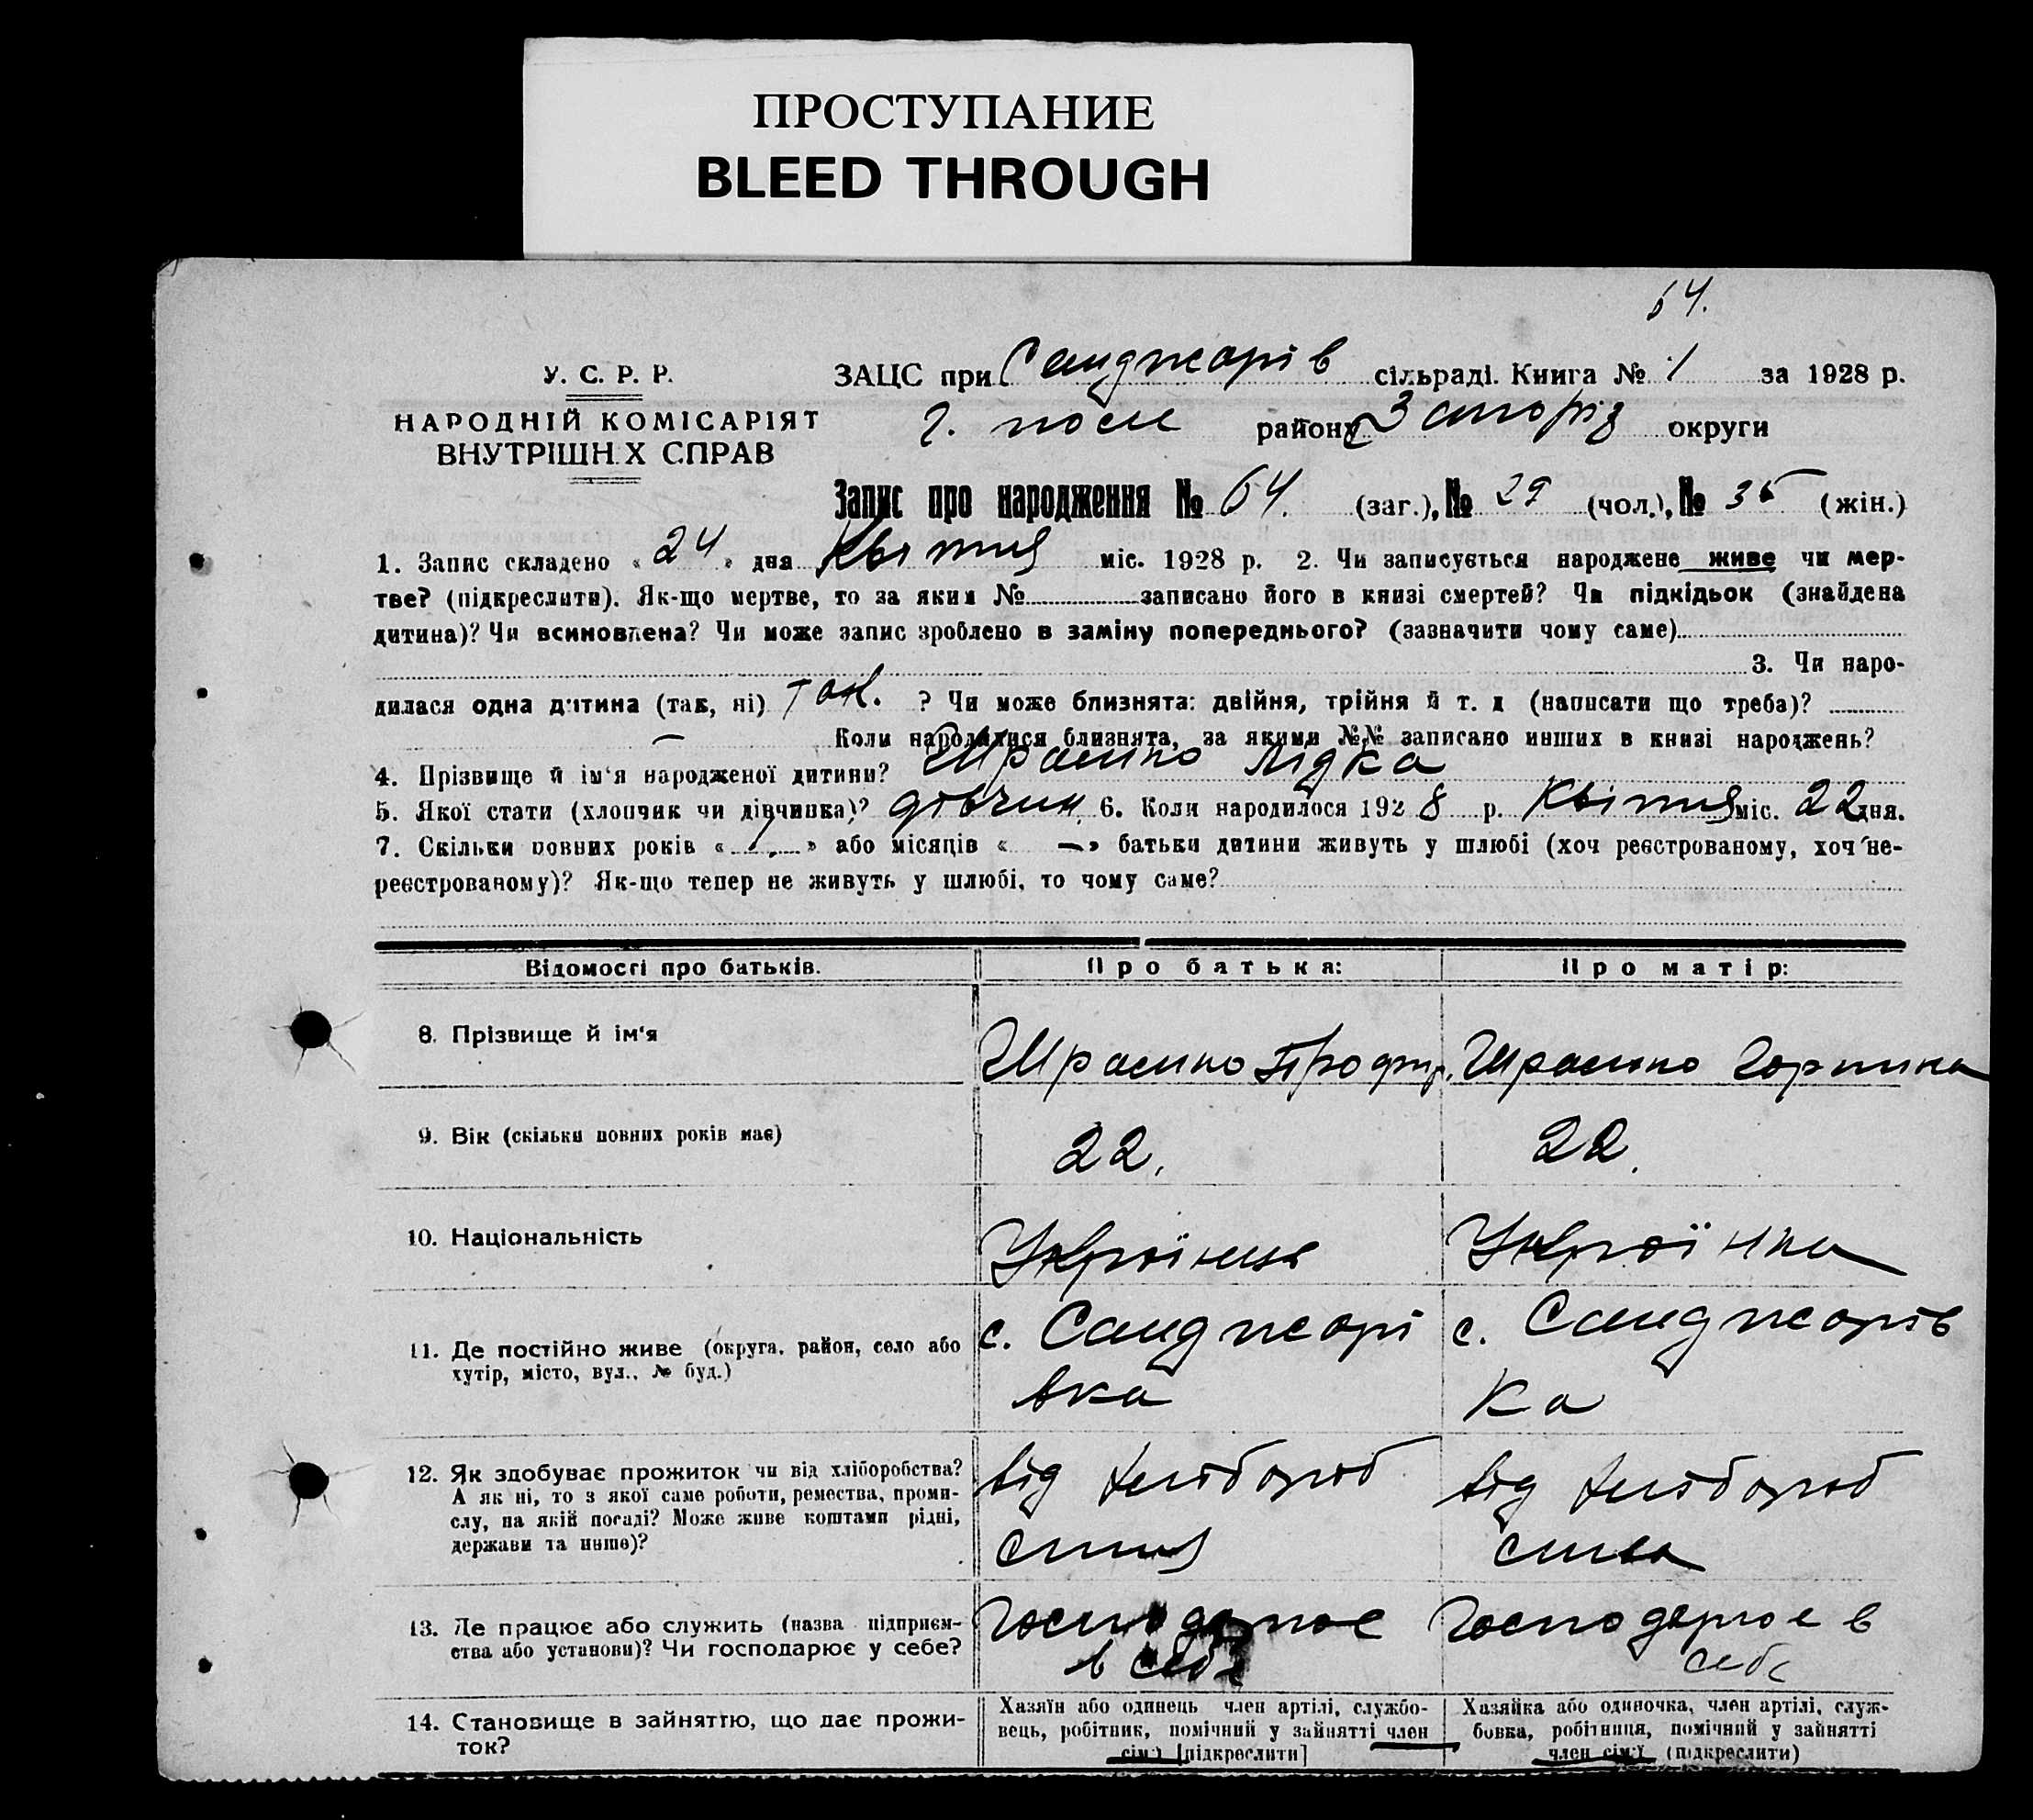 ПРОСТУПАНИЕ
BLEED THROUGH
64.
У. С. Р. Р.
НАРОДНІЙ КОМІСАРІЯТ
ВНУТРІШН.Х СПРАВ
ЗАЦС при Санджарів сільраді. Книга № 1 за 1928 р.
району Запоріз округи
Запис про народження № 64. (заг.), № 29 (чол.), № 35 (жін.)
1. Запис складено « 24 » дня Квітня міс. 1928 р. 2. Чи записується народжене живе чи мер-
тве? (підкреслити). Як-що мертве, то за яким № записано його в книзі смертей? Чи підкідьок (знайдена
дитина)? Чи всиновлена? Чи може запис зроблено в заміну попереднього? (зазначити чому саме)
3. Чи наро-
дилася одна дитина (так, ні) так. ? Чи може близнята: двійня, трійня й т. д (написати що треба)?
— Коли народилися близнята, за якими №№ записано инших в книзі народжень?
4. Прізвище й ім'я народженої дитини? Лідка
5. Якої стати (хлопчик чи дівчинка)? дівчин. 6. Коли народилося 1928 р. Квітня міс. 22 дня.
7. Скільки повних років « 1. » або місяців « — » батьки дитини живуть у шлюбі (хоч реєстрованому, хоч не-
реєстрованому)? Як-що тепер не живуть у шлюбі, то чому саме?
Відомості про батьків.
Про батька:
Про матір:
8. Прізвище й ім'я
Горпина
9. Вік (скільки повних років має)
22.
22.
10. Національність
Українець
Українка
11. Де постійно живе (округа, район, село або
хутір, місто, вул., № буд.)
с. Санджарі
вка
с. Санджарів
ка
12. Як здобуває прожиток чи від хліборобства?
А як ні, то з якої саме роботи, ремества, проми-
слу, на якій посаді? Може живе коштами рідні,
держави та инше)?
від хлібороб
ства
від хлібороб
ства
13. Де працює або служить (назва підприєм-
ства або установи)? Чи господарює у себе?
Господарює
в себе
Господарює в
себе
14. Становище в зайняттю, що дає прожи-
ток?
Хазяїн або одинець член артілі, службо-
вець, робітник, помічний у зайнятті член
сім'ї [підкреслити]
Хазяйка або одиночка, член артілі, служ-
бовка, робітниця, помічний у зайнятті
член сім'ї (підкреслити)